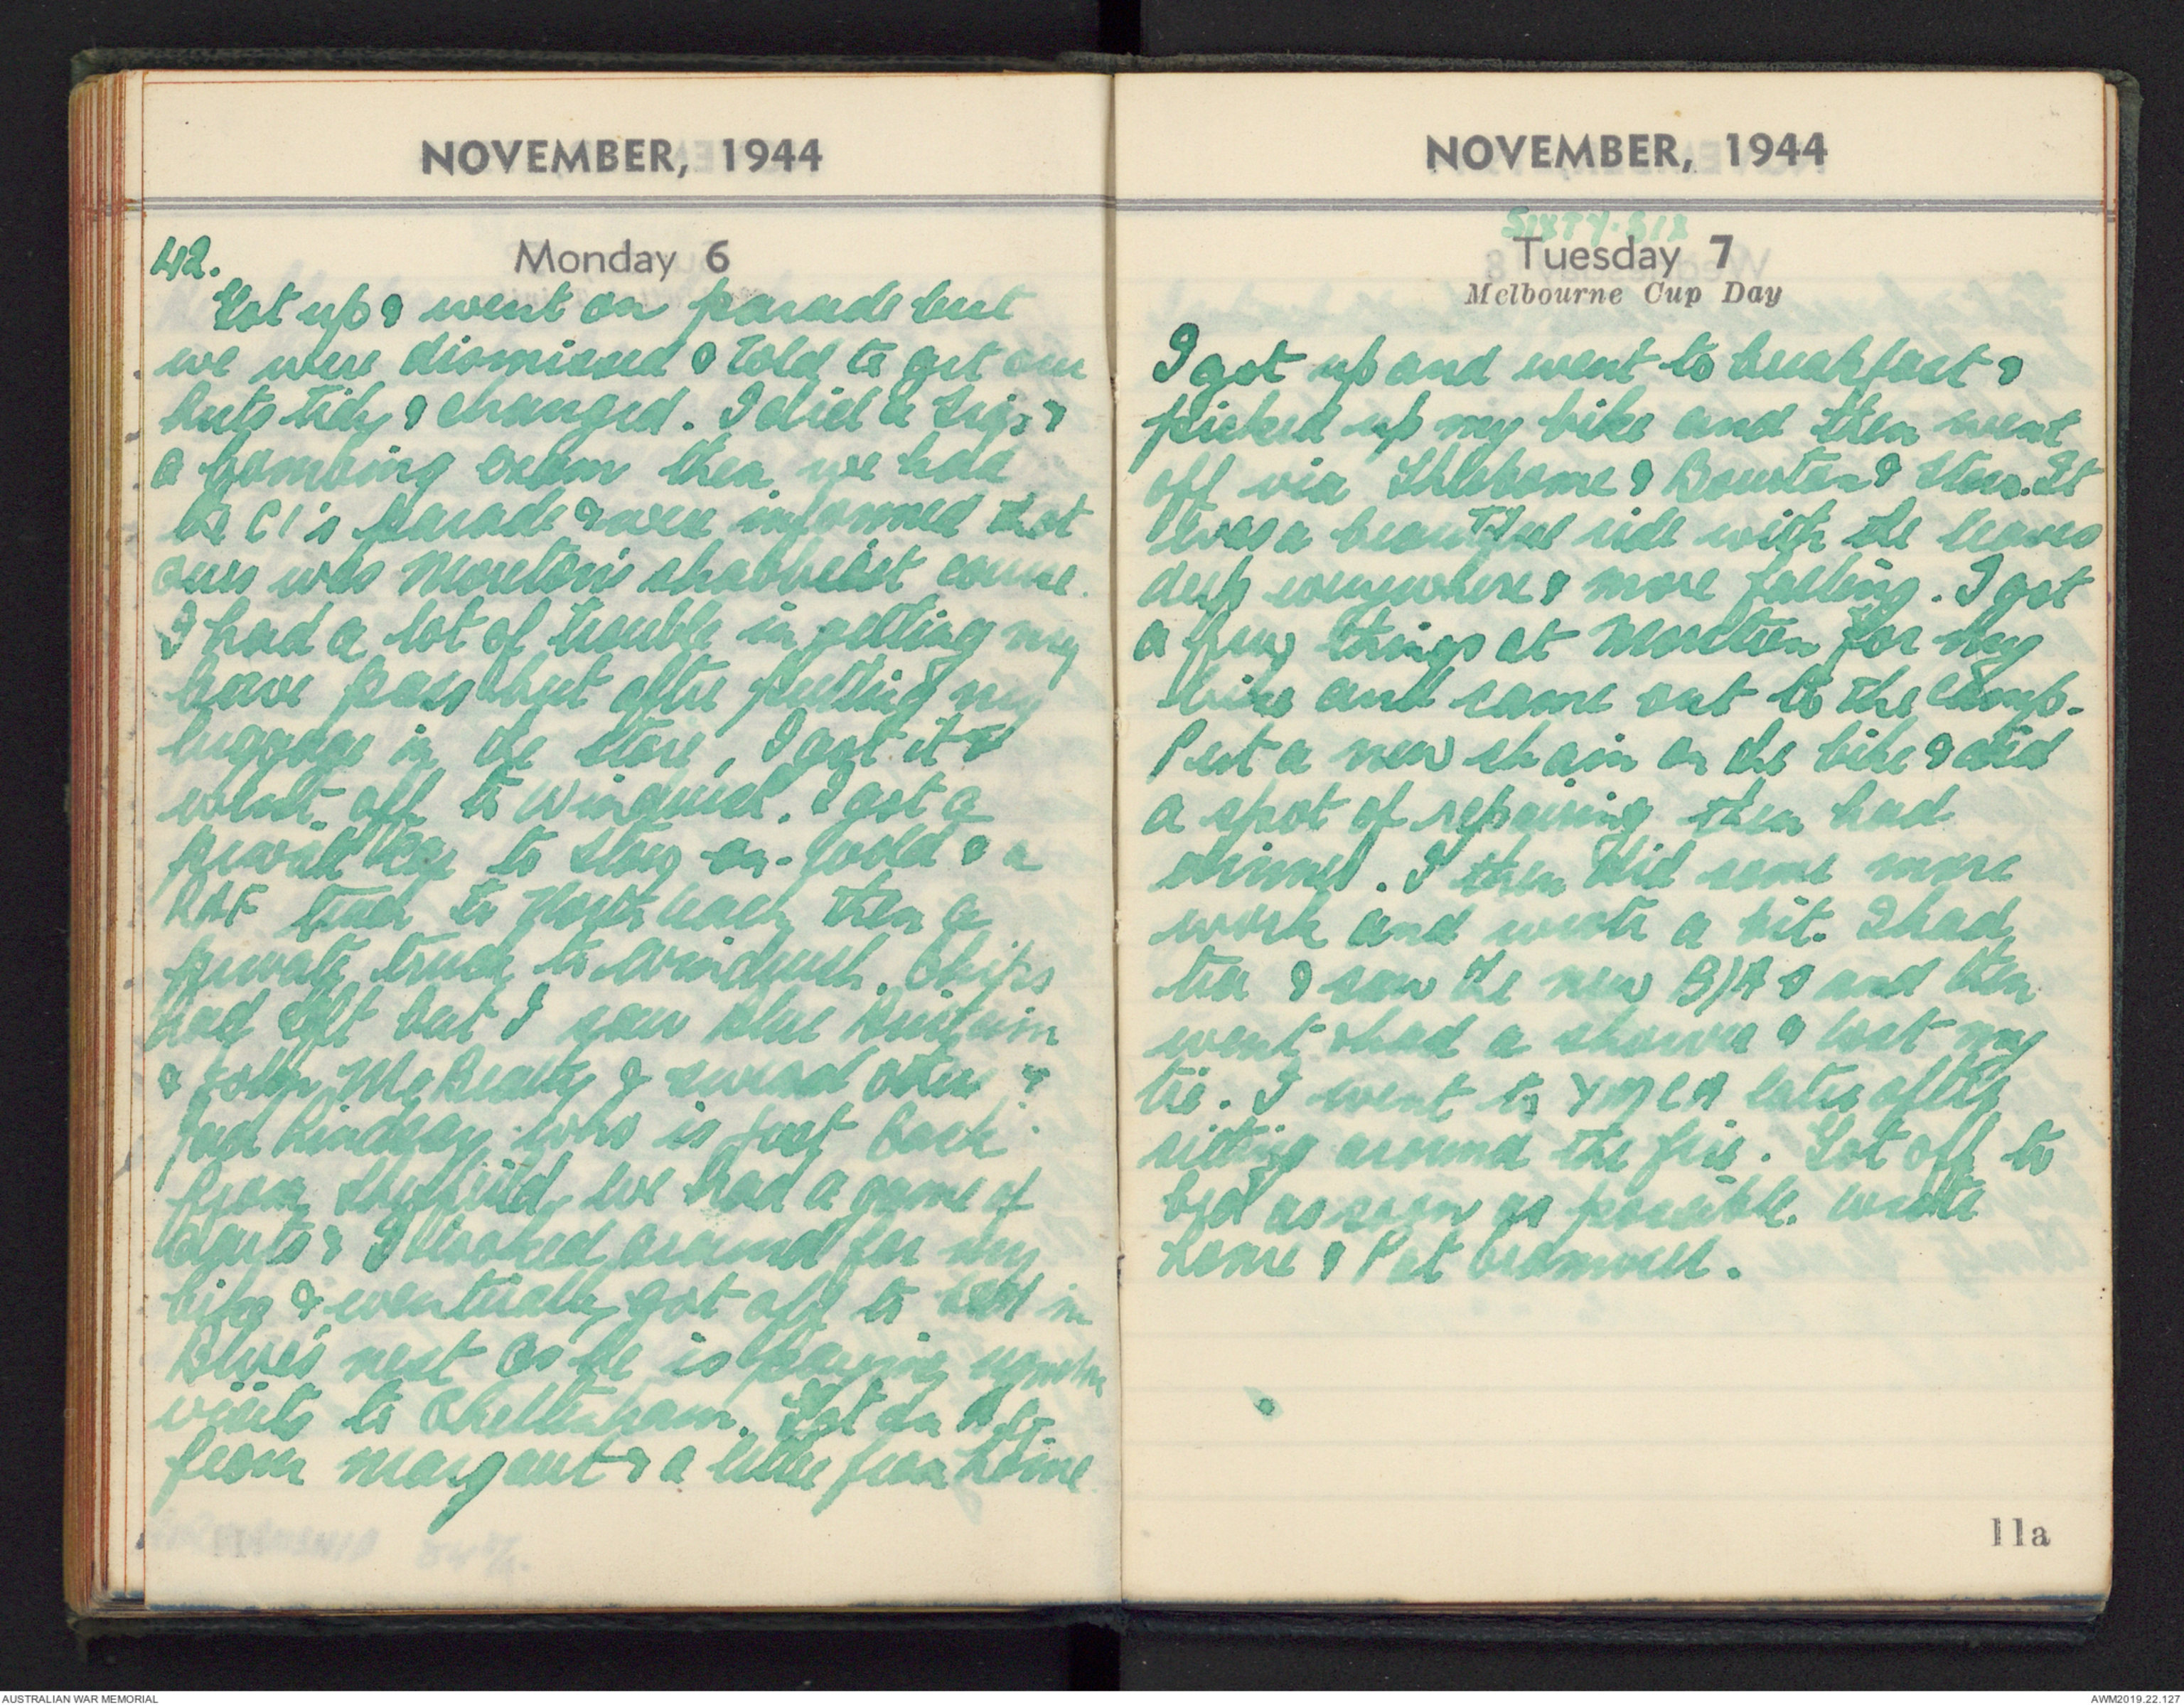 NOVEMBER, 1944
42.
Monday 6
Got up & went on parade but
we were dismissed & told to get our
huts tidy & changed. I did a Sigs &
a bombing exam then we had
the CI's parade & were informed that
ours was Moreton's shabbiest course.
I had a lot of trouble in getting my
leave pass but after putting my
luggage in the store, I got it &
went off to Windrush. I got a
private car to Stow-on-Wold & a
RAF truck to Northleach then a
private truck to Windrush. Chips
had left but I saw Blue
& John McBeatty & several others &
Jed Lindsay who is just back
from Sheffield. We had a game of
darts & I looked around for my
bike & eventually got off to bed in
Blue's next as he is paying
visits to Cheltenham. Got an
from Margaret & a letter from home
NOVEMBER, 1944
SIXTY-SIX
Tuesday 7
Melbourne Cup Day
I got up and went to breakfast &
picked up my bike and then went
off via & Bourton & Stow. It
was a beautiful ride with the leaves
deep everywhere & more falling. I got
a few things at Moreton for my
bike and came out to the camp.
Put a new chain on the bike & did
a spot of repairing then had
dinner. I then did some more
work and wrote a bit. I had
tea & saw the new B/A & and then
went & had a shower & lost my
tie. I went to YMCA later after
sitting around the fire. Got off to
bed as soon as possible. Wrote
home & Pat Bramwell.
11a
AUSTRALIAN WAR MEMORIAL
AWM2019.22.127